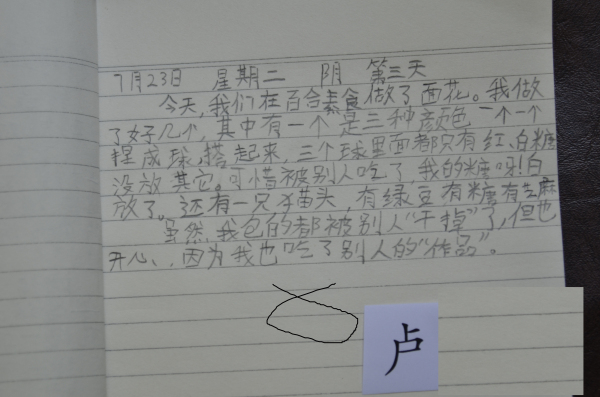 7月23日 星期二 阴 第三天
今天,我们在百合素食做了面花。我做
了好几个,其中有一个是三种颜色一个一个
捏成球,搭起来,三个球里面都只有红、白糖
没放其它。可惜被别人吃了,我的糖呀!白
放了。还有一只猫头,有绿豆有糖有芝麻
虽然我包的都被别人“干掉”了,但也
开心,因为我也吃了别人的“作品”。
卢